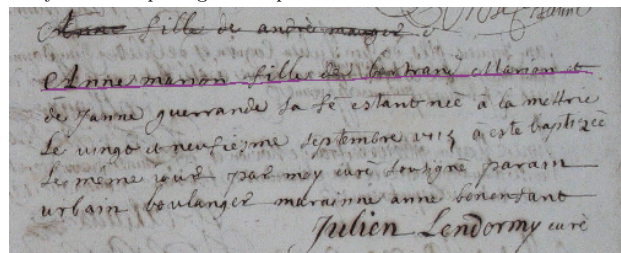 Anne fille de andré mauger
Anne marion fille de bertrand Marion et
de Janne guerrande sa fe estant née à la mettrie
Le vingt et neufiesme septembre 1715 a este baptizéé
Le même jour par moy curé sousigné parain
urbain boulanger marainne anne bonenfant
Julien Lendormy curé